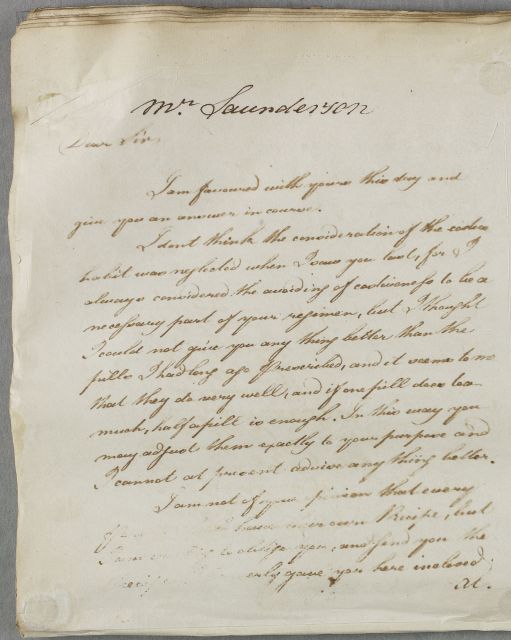 Mr. Saunderson
Dear Sir,
I am favoured with yours this day and
give you an answer in course.
I dont think the consideration of the costive
habit was neglected when I saw you last, for I
always considered the avoiding of costiveness to be a
necessary part of your regimen, but I thought
I could not give you any thing better than the
pills I had long ago prescribed, and it seems to me
that they do very well, and if one pill does too
much, half a pill is enough. In this way you
may adjust them exactly to your purpose and
I cannot at present advise any thing better.
I am not of your opinion that every
have their own Recipe, but
I am to oblige you, and send you the
gave you here inclosed;